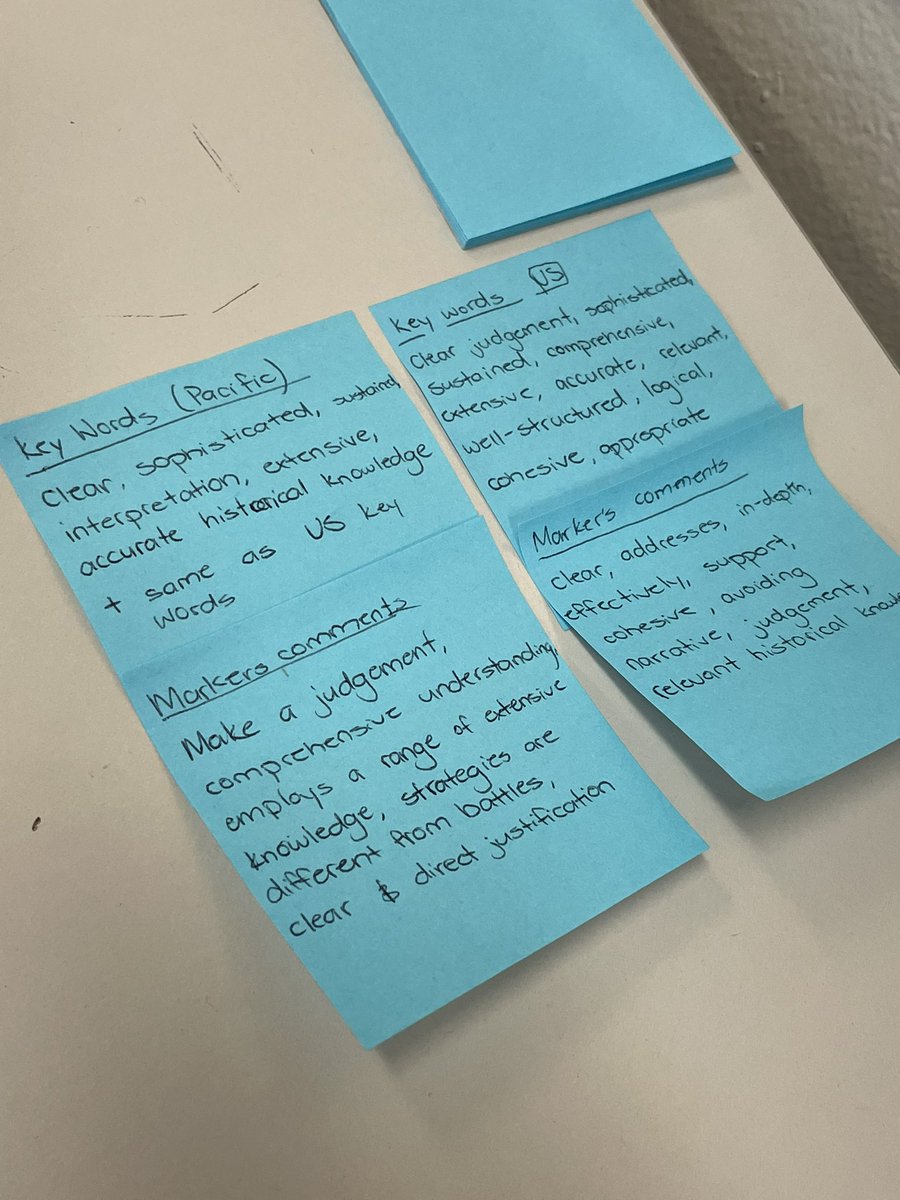 Key Words (Pacific)
Clear, sophisticated, sustained,
interpretation, extensive,
accurate historical knowledge
+ same as US key
words
Markers comments
Make a judgement,
comprehensive understanding,
employs a range of extensive
knowledge, strategies are
different from battles,
clear & direct justification
Key words US
Clear judgement, sophisticated,
sustained, comprehensive,
extensive, accurate, relevant,
well-structured, logical,
cohesive, appropriate
Marker's comments
clear, addresses, in-depth,
effectively, support,
cohesive, avoiding
narrative, judgement,
relevant historical